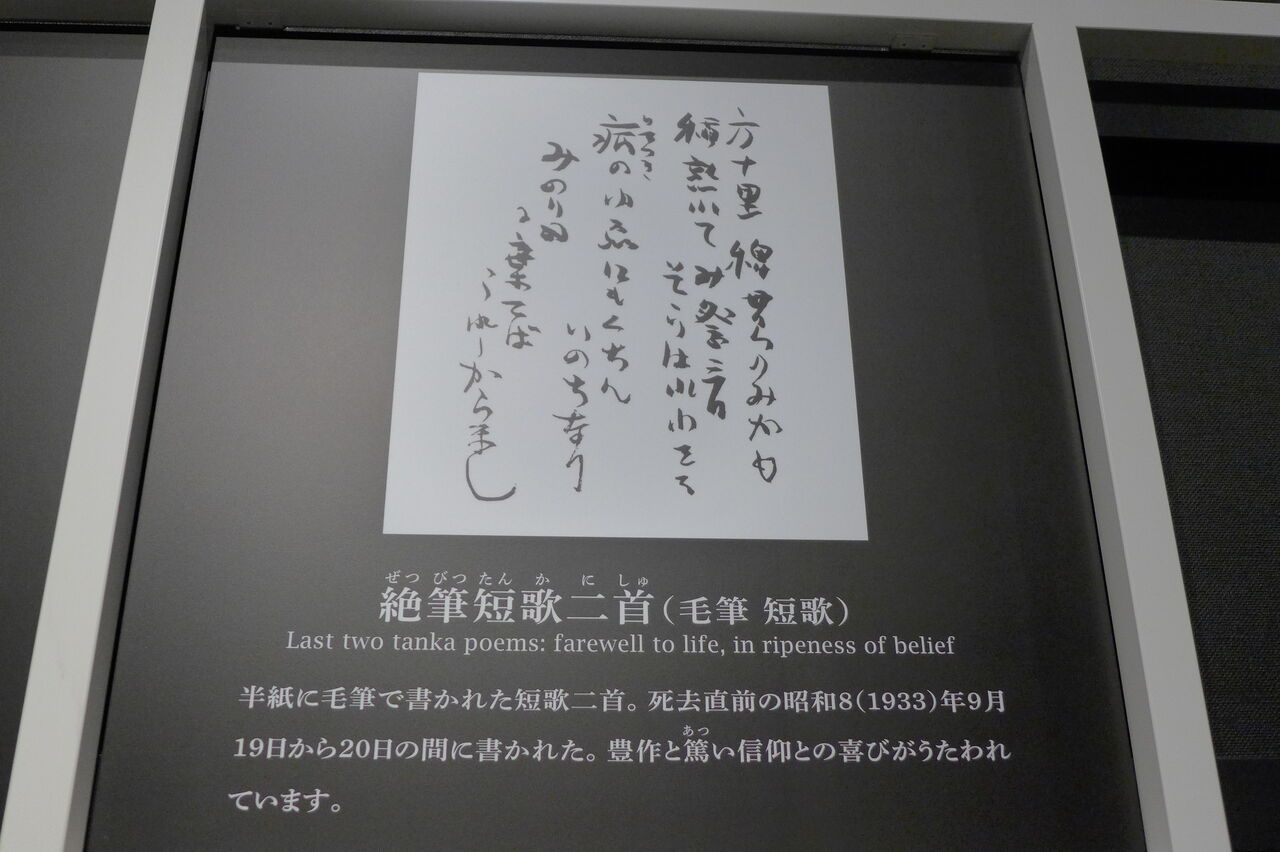 方十里 稗貫のみかも
稲熟れて み祭三日
そらはれわたる
いたつき
病のゆゑにもくちん
いのちなり
みのりに
棄てば
うれしからまし
ぜつ びつ たん か に しゅ
絶筆短歌二首(毛筆 短歌)
Last two tanka poems: farewell to life, in ripeness of belief
半紙に毛筆で書かれた短歌二首。死去直前の昭和8(1933)年9月
あつ
19日から20日の間に書かれた。豊作と篤い信仰との喜びがうたわれ
ています。